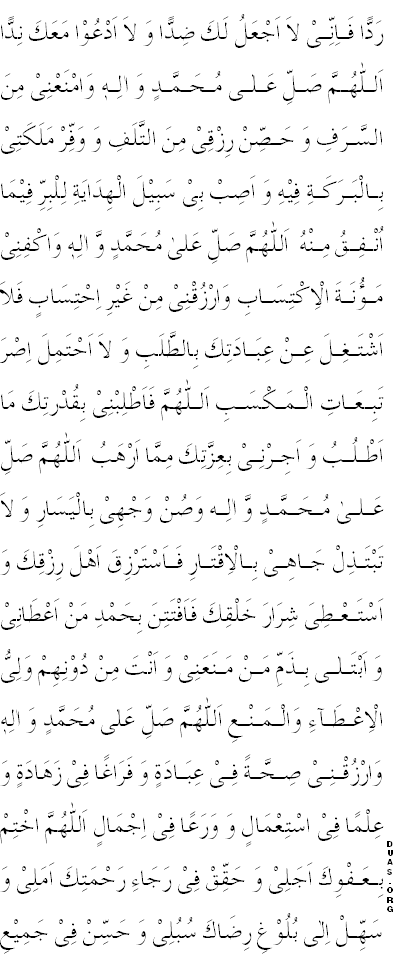 رَدًّا فَـاِنِّـىْ لاَ اَجْعَلُ لَكَ ضِدًّا وَ لاَ اَدْعُوْا مَعَكَ نِدًّا
اَللّٰهُــمَّ صَــلِّ عَــلـٰى مُـحَـمَّـدٍ وَ اٰلِـهٖ وَامْنَعْنِىْ مِنَ
السَّـرَفِ وَ حَـصِّنْ رِزْقِىْ مِنَ التَّلَفِ وَ وَفِّرْ مَلَكَتِىْ
بِـالْبَـرَكَـةِ فِيْهِ وَ اَصِبْ بِىْ سَبِيْلَ الْهِدَايَةِ لِلْبِرِّ فِيْمَا
اُنْـفِـقُ مِـنْهُ اَللّٰهُمَّ صَلِّ عَلىٰ مُحَمَّدٍ وَّ اٰلِهٖ وَاكْفِنِىْ
مَـؤُنَـةَ الْاِكْتِسَـابِ وَارْزُقْنِىْ مِنْ غَيْرِ اِحْتِسَابٍ فَلاَ
اَشْتَـغِـلَ عَـنْ عِبَـادَتِكَ بِالطَّلَبِ وَ لاَ اَحْتَمِلَ اِصْرَ
تَبِـعَـاتِ الْـمَـكْسَـبِ اَللّٰهُمَّ فَاَطْلِبْنِىْ بِقُدْرَتِكَ مَا
اَطْـلُـبُ وَ اَجِـرْنِـىْ بِعِزَّتِكَ مِمَّا اَرْهَبُ اَللّٰهُمَّ صَلِّ
عَـلـىٰ مُـحَـمَّـدٍ وَّ اٰلِـهٖ وَصُنْ وَجْهِىْ بِالْيَسَارِ وَ لاَ
تَبْتَـذِلْ جَـاهِـىْ بِـالْاِقْتَـارِ فَـاَسْتَرْزِقَ اَهْلَ رِزْقِكَ وَ
اَسْتَـعْـطِـىَ شِرَارَ خَلْقِكَ فَاَفْتَتِنَ بِحَمْدِ مَنْ اَعْطَانِىْ
وَ اُبْتَـلـٰى بِـذَمِّ مَـنْ مَـنَعَنِىْ وَ اَنْتَ مِنْ دُوْنِهِمْ وَلِىُّ
الْاِعْـطَـآءِ وَالْـمَـنْـعِ اَللّٰهُمَّ صَلِّ عَلىٰ مُحَمَّدٍ وَ اٰلِهٖ
وَارْزُقْـنِـىْ صِحَّـةً فِـىْ عِبَـادَةٍ وَ فَرَاغًا فِىْ زَهَادَةٍ وَ
عِلْمًا فِىْ اسْتِعْمَالٍ وَ وَرَعًا فِىْ اِجْمَالٍ اَللّٰهُمَّ اخْتِمْ
بِـعَـفْوِكَ اَجَلِىْ وَ حَقِّقْ فِىْ رَجَاءِ رَحْمَتِكَ اَمَلِىْ وَ
سَهِّلْ اِلىٰ بُلُوْغِ رِضَاكَ سُبُلِىْ وَ حَسِّنْ فِىْ جَمِيْعِ
DUAS.ORG